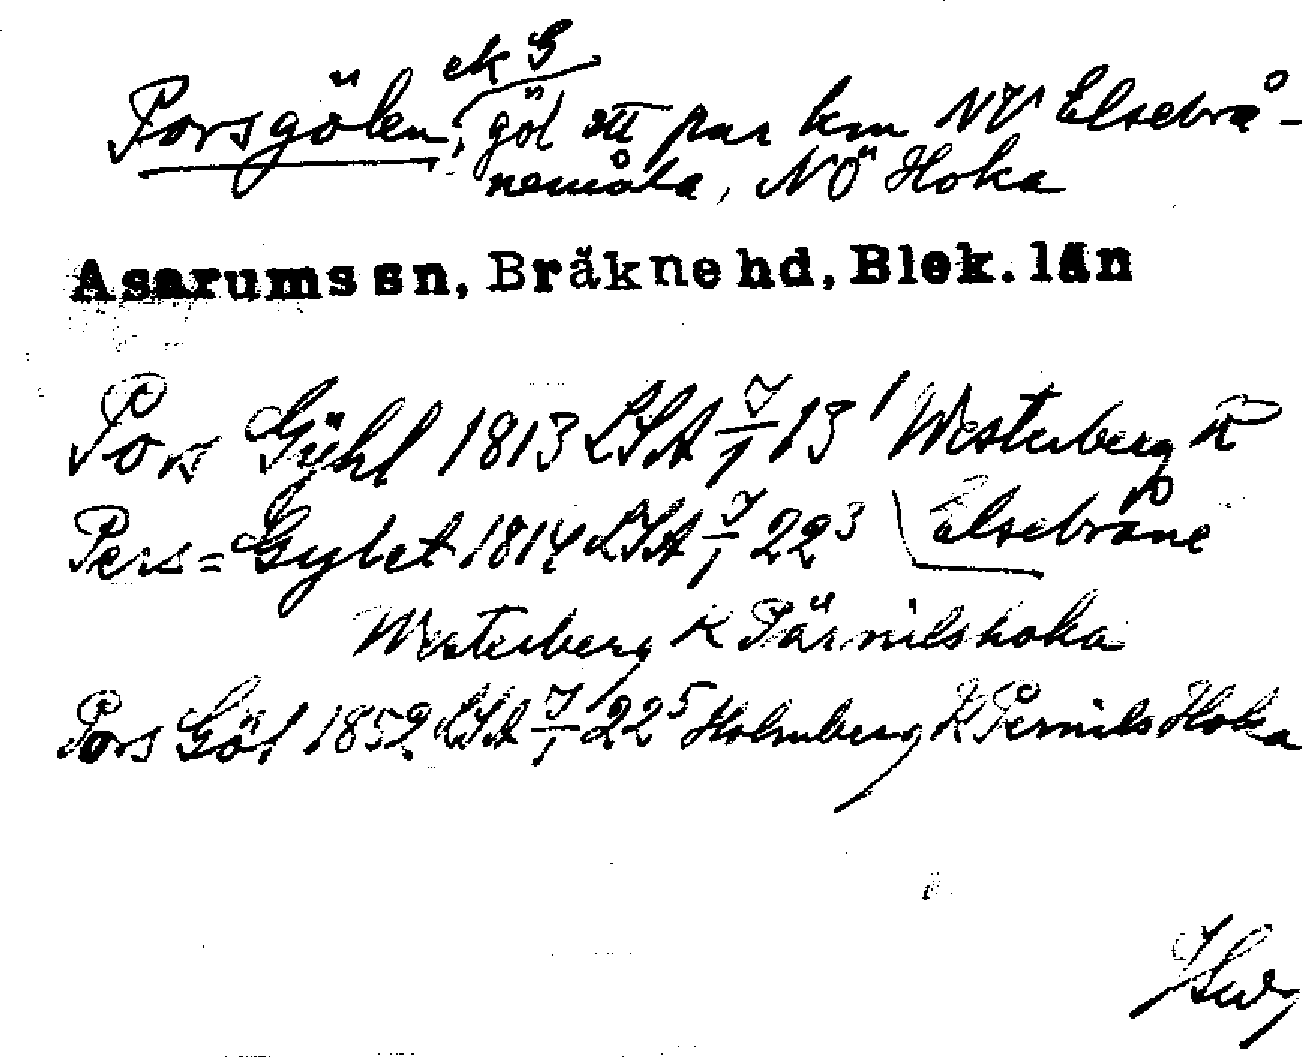 ek S
Porsgölen, göl ett par km NV Elsebrå-
nemåla, NÖ Hoka
Asarums sn, Bräkne hd, Blek. län
Pors Gÿhl 1813 LSA 7/1 13¹ Westerberg K
Elsebråne
Pers=Gylet 1814 LSA 7/1 22³
Westerberg K Pärnilshoka
Pors Göl 1852 LSA 7/1 22⁵ Holmberg K Pernils Hoka